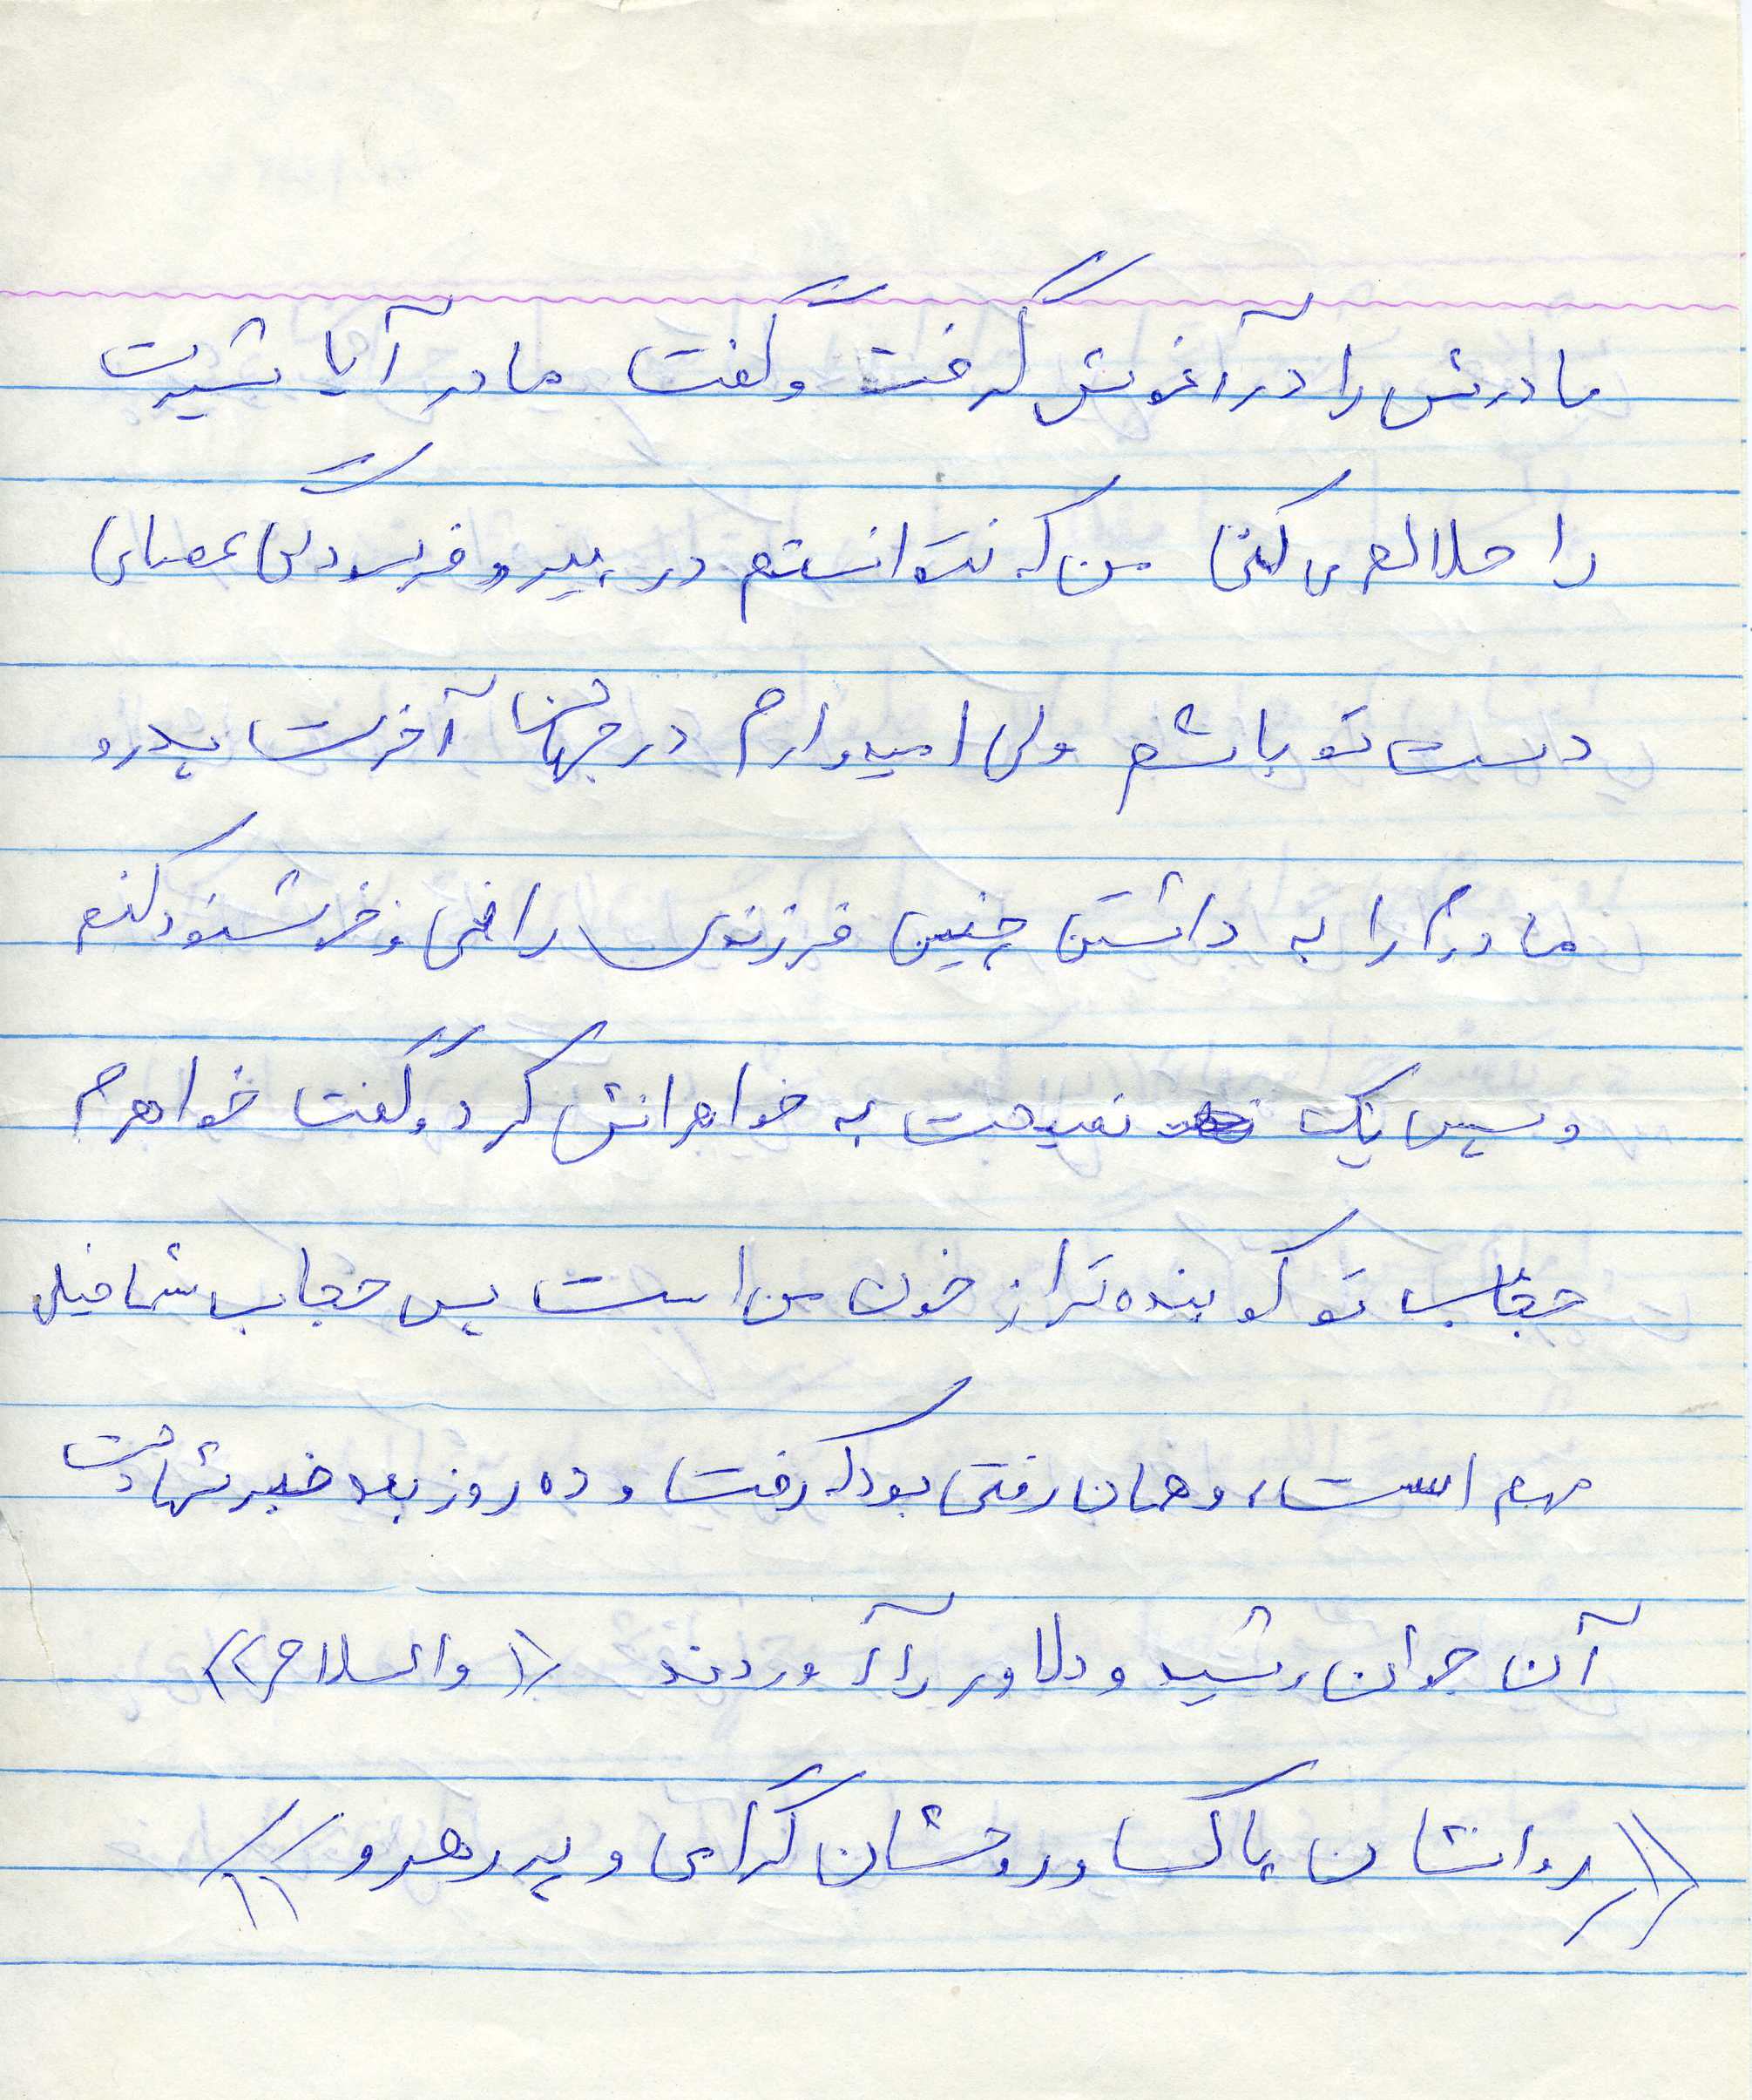 مادرش را در آغوش گرفت و گفت مادر آیا شیرت
را حلالم می کنی من که نتوانستم در پیر و فرسودگی عصای
دست تو باشم ولی امیدوارم در جهان آخرت پدر و
مادرم را به داشتن چنین فرزندی راضی و خوشنود کنم
و سپس یک نصیحت به خواهرانش کرد و گفت خواهرم
حجاب تو کوبنده تر از خون من است پس حجاب شما خیلی
مهم است، و همان رفتی بود که رفت و ده روز بعد خبر شهادت
آن جوان رشید و دلاور را آوردند ((والسلام))
((روانشان پاک و روحشان گرامی و پر رهرو))